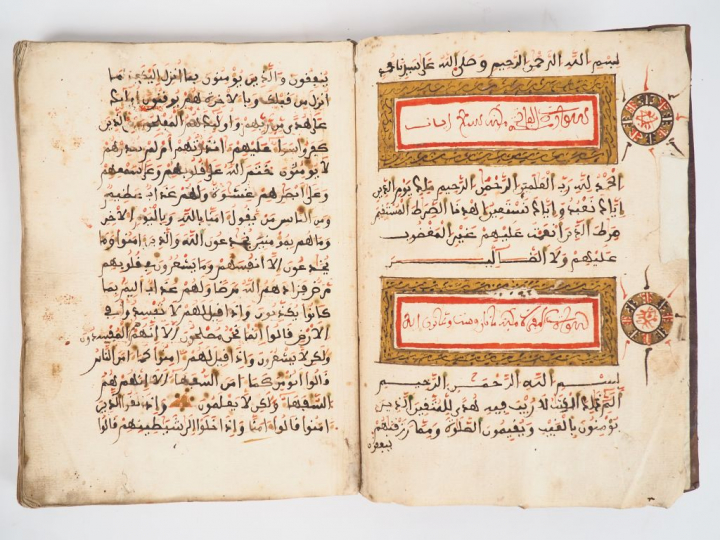 بسم الله الرحمن الرحيم وصلى الله على سيدنا محمد
سورة
الحمد لله رب العلمين الرحمن الرحيم ملك يوم الدين
إياك نعبد وإياك نستعين اهدنا الصراط المستقيم
صراط الذين أنعمت عليهم غير المغضوب
عليهم ولا الضالين
سورة
بسم الله الرحمن الرحيم
الم ذلك الكتب لا ريب فيه هدى للمتقين الذين
يومنون بالغيب ويقيمون الصلوة ومما رزقنهم
ينفقون
ينفقون والذين يومنون بما انزل اليك وما
انزل من قبلك وبالاخرة هم يوقنون اوليك
على هدى من ربهم واوليك هم المفلحون ان الذين
كفروا سواء عليهم ءانذرتهم ام لم تنذرهم
لا يومنون ختم الله على قلوبهم وعلى سمعهم
وعلى ابصرهم غشوة ولهم عذاب عظيم
ومن الناس من يقول امنا بالله وباليوم الاخر
وما هم بمومنين يخدعون الله والذين امنوا وما
يخدعون الا انفسهم وما يشعرون في قلوبهم
مرض فزادهم الله مرضا ولهم عذاب اليم بما
كانوا يكذبون واذا قيل لهم لا تفسدوا في
الارض قالوا انما نحن مصلحون الا انهم هم المفسدون
ولكن لا يشعرون واذا قيل لهم امنوا كما امن الناس
قالوا انومن كما امن السفهاء الا انهم هم
السفهاء ولكن لا يعلمون واذا لقوا الذين
امنوا قالوا امنا واذا خلوا الى شيطينهم قالوا